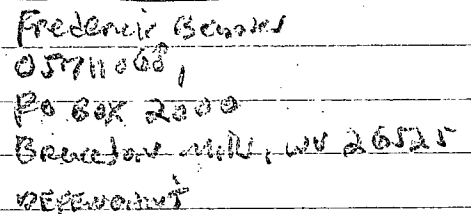 Frederick Banks
05711068,
PO BOX 2000
Bruceton Mills, WV 26525
DEFENDANT